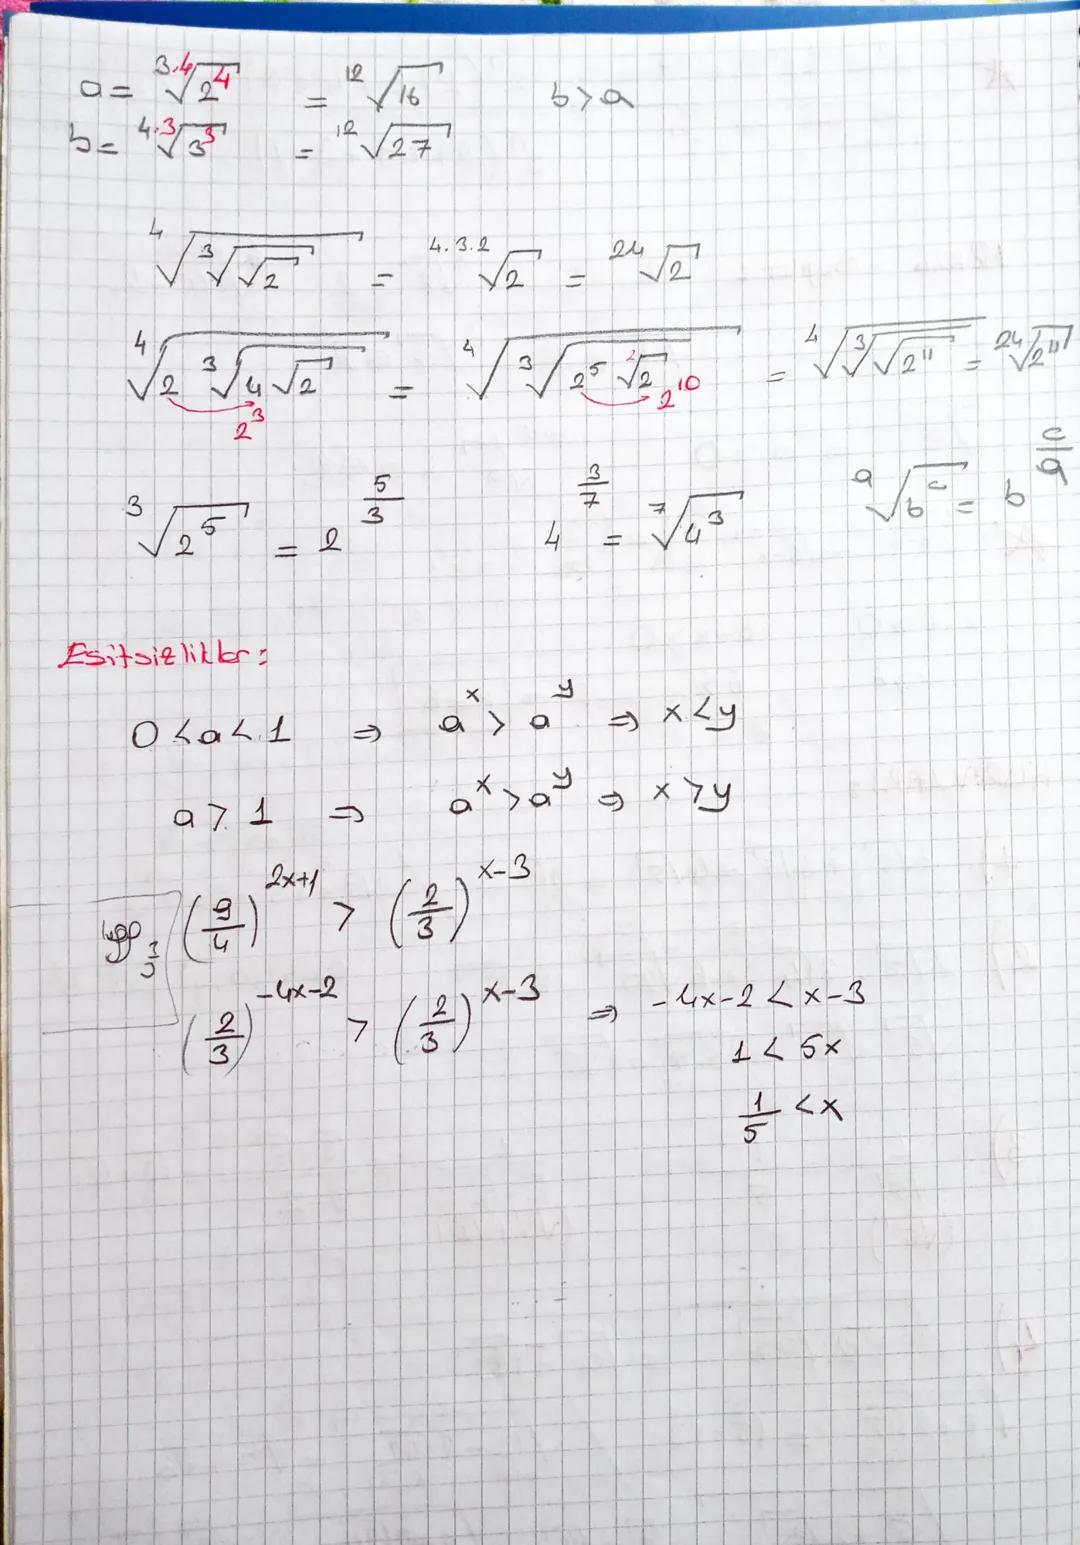 a = ³·⁴√2⁴ = ¹²√16 b > a
b = ⁴·³√3³ = ¹²√27
⁴√(³√(√2)) = ⁴·³·²√2 = ²⁴√2
⁴√(2 ³√(4 √2)) = ⁴√(³√(2⁵ ²√2)) = ⁴√(³√(√2¹¹)) = ²⁴√2¹¹
2³ 2¹⁰
³√2⁵ = 2^(5/3) 4^(3/7) = ⁷√4³ ᵃ√bᶜ = b^(c/a)
Esitsizlikler:
0 < a < 1 ⇒ aˣ > aʸ ⇒ x < y
a > 1 ⇒ aˣ > aʸ ⇒ x > y
(9/4)^(2x+1) > (2/3)^(x-3)
(2/3)^(-4x-2) > (2/3)^(x-3) ⇒ -4x-2 < x-3
1 < 5x
1/5 < x